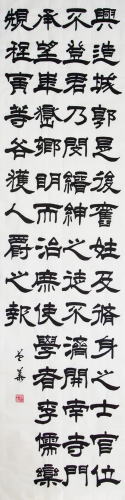 興造城郭是後舊姓及脩身之士官位
不登君乃閔縉紳之徒不濟開南寺門
承望華嶽鄉明而治庶使學者李儒欒
規程寅等各獲人爵之報